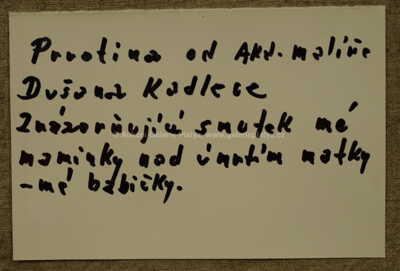 Prvotina od Akd. malíře
Dušana Kadlece
Znázorňující smutek mé
maminky nad úmrtím matky
-mé babičky.